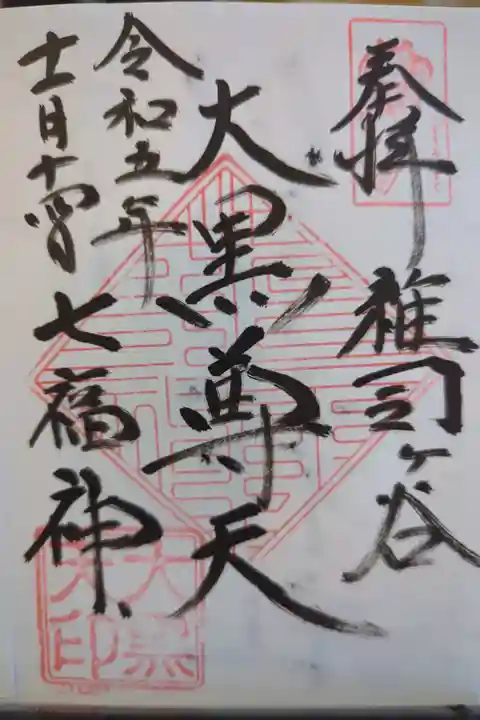 奉拝
雑司ヶ谷
大黒尊天
令和五年
十一月十四日
七福神
大黒
天印